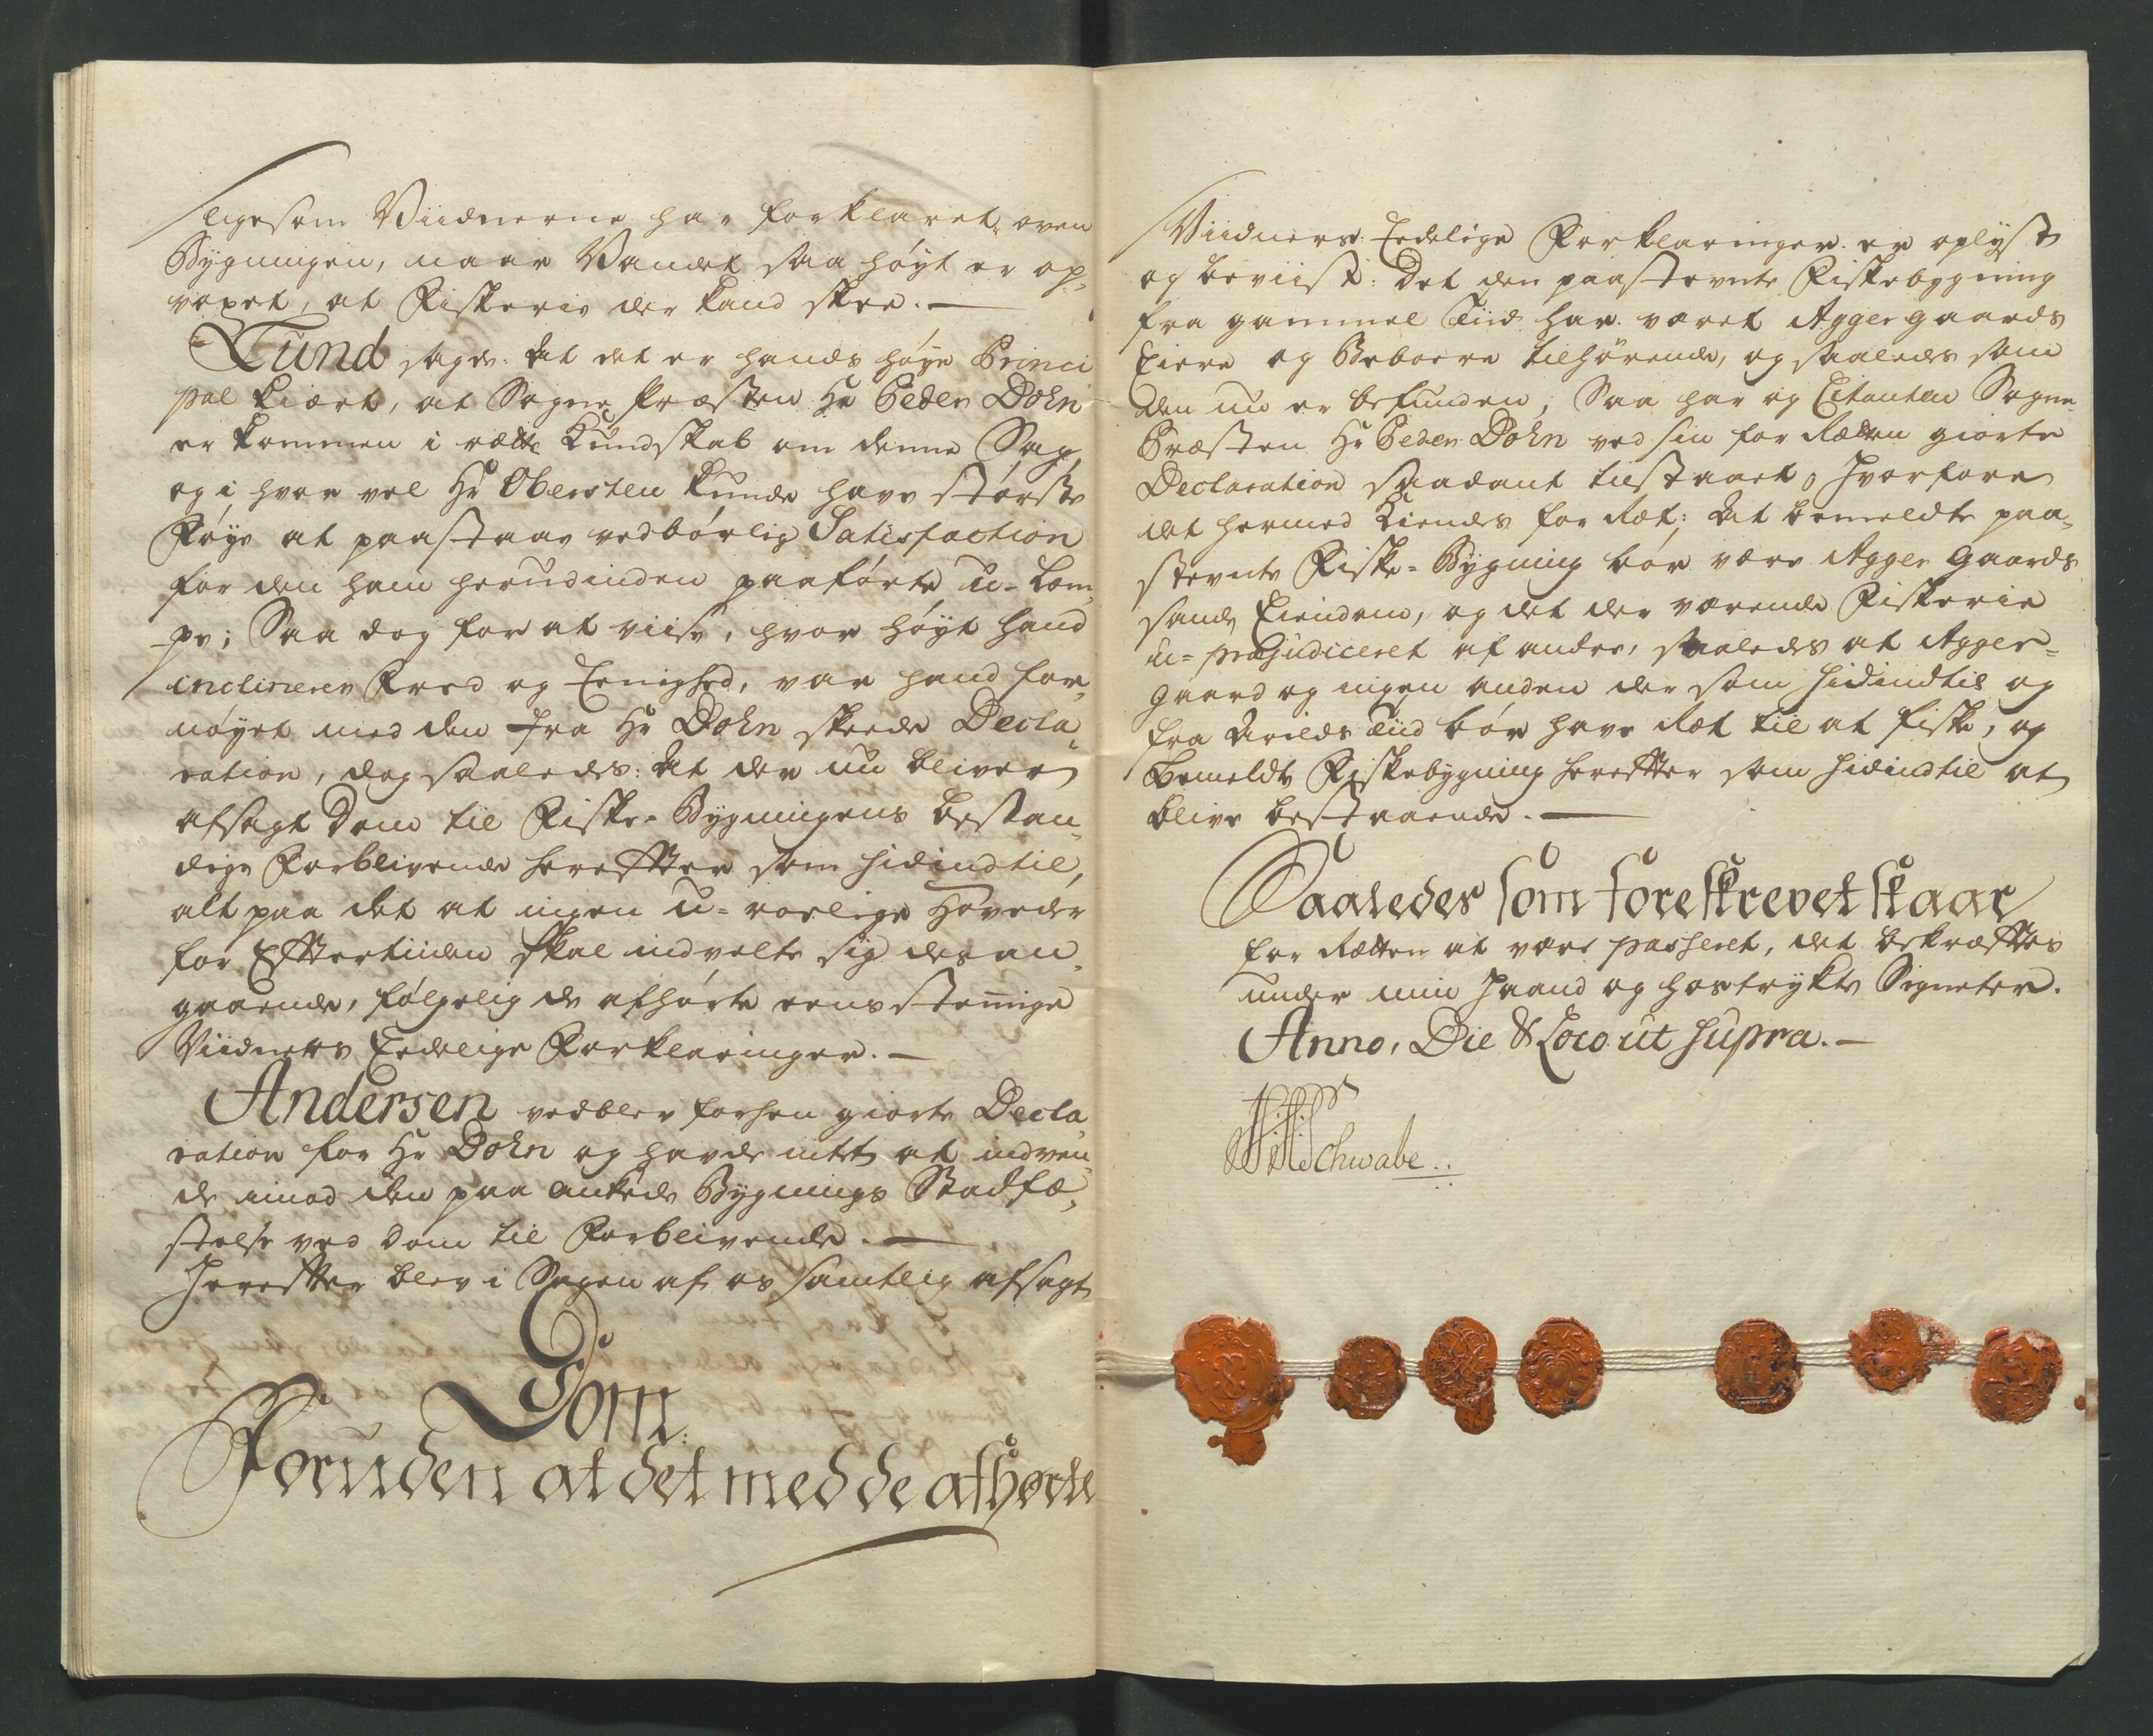 ligesom Viidnerne har forklaret, oven
Bygningen, naar Vandet saa høyt er op-
voxet, at Fiskerie der kand skee. —
Lund sagde: At det er hands høye Princi
pal kiært, at Sogne Præsten Hr Peder Dohn
er kommen i rætte Kundskab om denne Sag,
og i hvor vel Hr Obersten kunde have største
Føye at paastaae vedbørlig Satisfaction
for den ham herudinden paaførte u-Læm-
pe; Saa dog for at viise, hvor høyt hand
inclinerer Fred og Eenighed, var hand for-
nøyet med den fra Hr Dohn skeede Decla-
ration, dog saaledes: At der nu bliver
afsagt Dom til Fiske-Bygningens bestan-
dige Forblivende herefter som hidindtil,
alt paa det at ingen u-roelige Hoveder
for Eftertiiden skal indvelte sig desan-
gaaende, følgelig de afhørte eensstemige
Viidners Eedelige Forklaringer. —
Andersen vedblev forhen giorte Decla-
ration for Hr Dohn og havde intet at indven-
de imod den paa ankede Bygnings Stadfæ-
stelse ved Dom til Forblivende. —
Herefter blev i Sagen af os samtlig afsagt
Dom:
Foruden at det med de afhørte
Viidners Eedelige Forklaringer er oplyst
og beviist: Det den paastevnte Fiskebygning
fra gammel Tiid har været Aggergaards
Eiere og Beboere tilhørende, og saaledes som
den nu er befunden; Saa har og Citanten Sogne-
Præsten Hr Peder Dohn ved sin for Rætten giorte
Declaration saadant tilstaaet, Hvorfore
det hermed Kiendes for Ræt: At bemeldte paa-
stevnte Fiske-Bygning bør være Agger Gaards
sande Eiendom, og det der værende Fiskerie
u-præjudiceret af andre, saaledes at Agger-
gaard og ingen anden der som hidindtil og
fra Arilds Tiid bør have Ræt til at fiske, og
Bemeldte Fiskebygning herefter som hidindtil at
blive bestaaende. —
Saaledes som foreskrevet staar
for Rætten at være passeret, det bekræftes
under min Haand og hostrykte Signeter.
Anno, Die & Loco ut supra. —
Schwabe